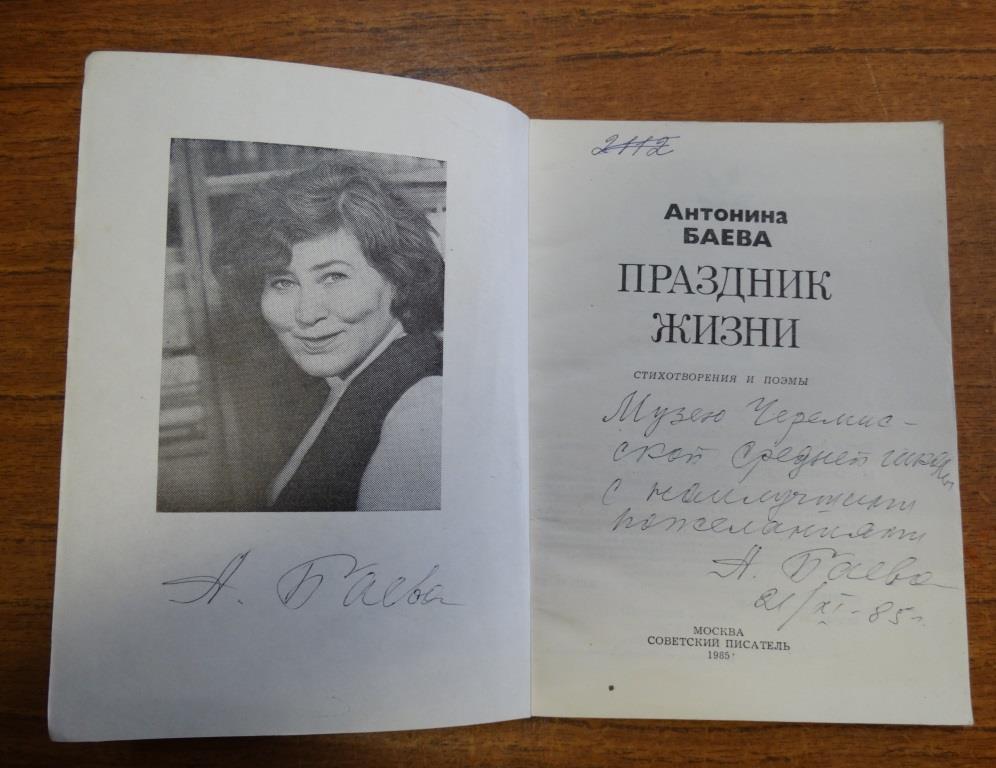 А. Баева
2112
Антонина
БАЕВА
ПРАЗДНИК
ЖИЗНИ
СТИХОТВОРЕНИЯ И ПОЭМЫ
Музею Черемис-
ской средней школы
с наилучшими
пожеланиями
А. Баева
21/XI-85 г.
МОСКВА
СОВЕТСКИЙ ПИСАТЕЛЬ
1985